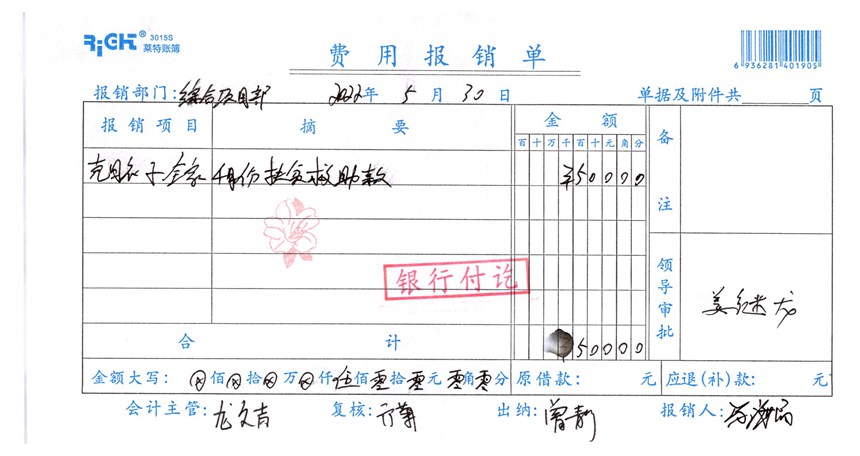 RiGHT® 3015S
莱特账簿
费用报销单
6 936281 401905
报销部门:综合项目部 2022年5月30日 单据及附件共 页
报销项目 摘要 金额 备注
百十万千百十元角分
4月份扶贫救助款 ¥50000
银行付讫
领导审批
合计 50000
金额大写:⊗佰⊗拾⊗万⊗仟伍佰零拾零元零角零分 原借款: 元 应退(补)款: 元
会计主管:龙文吉 复核: 出纳:曾靓 报销人: